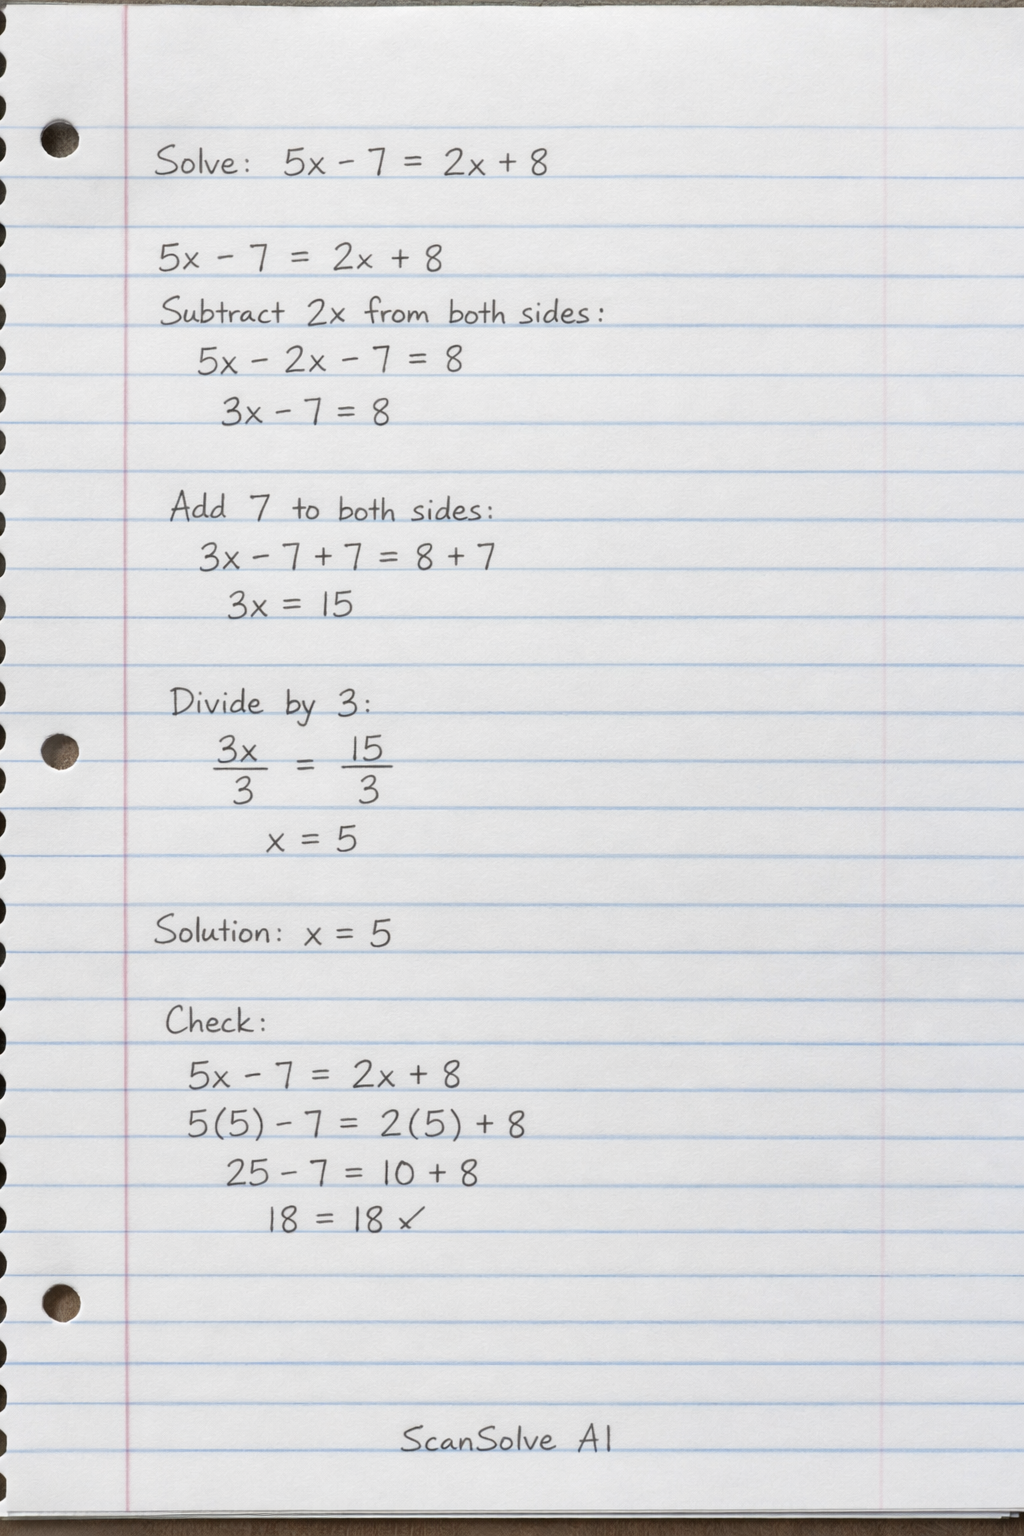 Solve: 5x - 7 = 2x + 8
5x - 7 = 2x + 8
Subtract 2x from both sides:
5x - 2x - 7 = 8
3x - 7 = 8
Add 7 to both sides:
3x - 7 + 7 = 8 + 7
3x = 15
Divide by 3:
3x/3 = 15/3
x = 5
Solution: x = 5
Check:
5x - 7 = 2x + 8
5(5) - 7 = 2(5) + 8
25 - 7 = 10 + 8
18 = 18 ✓
ScanSolve AI